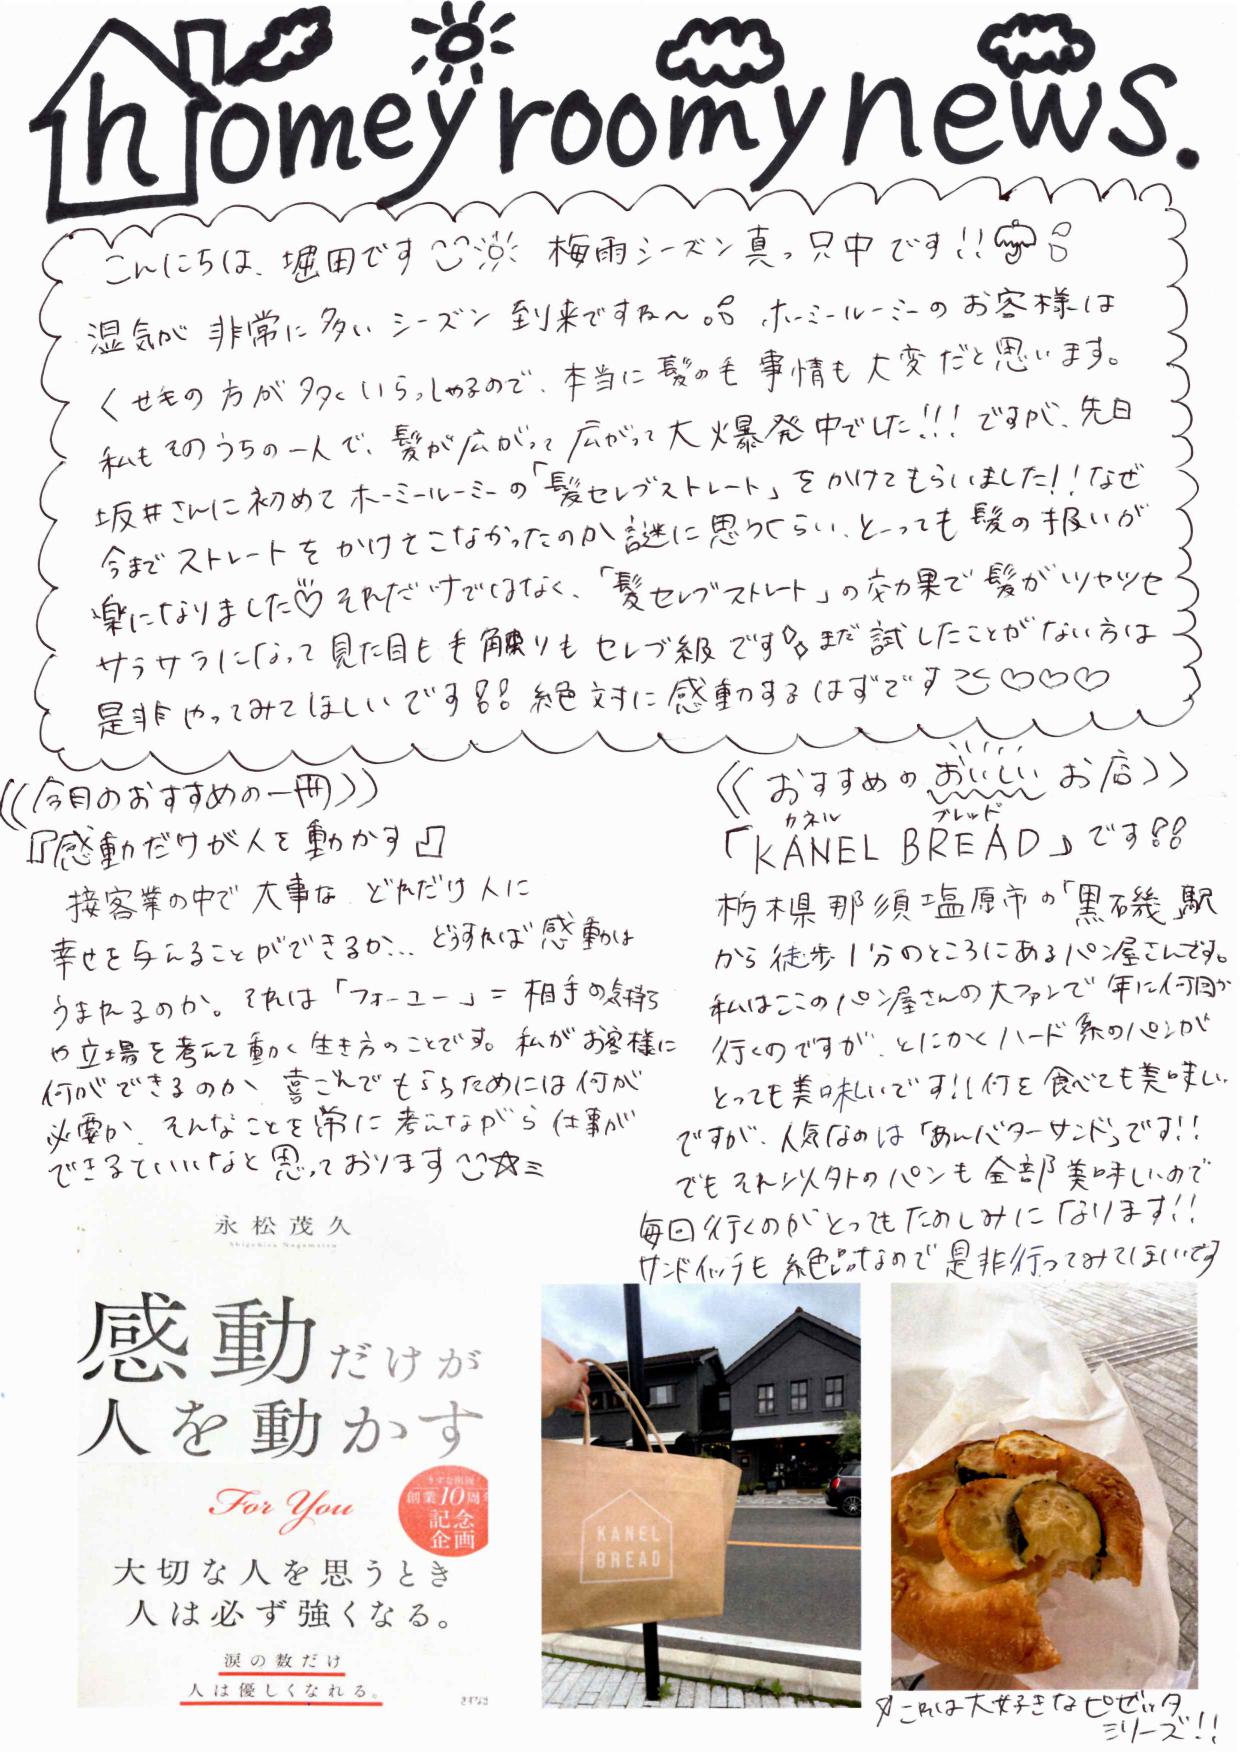 homey roomy news.
こんにちは、堀田です 梅雨シーズン真っ只中です!!
湿気が非常に多いシーズン到来ですね〜 ホーミールーミーのお客様は
くせ毛の方が多くいらっしゃるので、本当に髪の毛事情も大変だと思います。
私もそのうちの一人で、髪が広がって広がって大爆発中でした!!!ですが、先日
坂井さんに初めてホーミールーミーの「髪セレブストレート」をかけてもらいました!!なぜ
今までストレートをかけてこなかったのか謎に思うくらい、とーっても髪の扱いが
楽になりました♡それだけではなく、「髪セレブストレート」の効果で髪がツヤツヤ
サラサラになって見た目も手触りもセレブ級です まだ試したことがない方は
是非やってみてほしいです!! 絶対に感動するはずです♡♡♡
《今月のおすすめの一冊》
『感動だけが人を動かす』
接客業の中で大事な、どれだけ人に
幸せを与えることができるか... どうすれば感動は
うまれるのか。それは「フォーユー」=相手の気持ち
や立場を考えて動く生き方のことです。私がお客様に
何ができるのか、喜こんでもらうためには何が
必要か、そんなことを常に考えながら仕事が
できるといいなと思っております☆
《おすすめのおいしいお店》
カネル ブレッド
「KANEL BREAD」です!!
栃木県那須塩原市の「黒磯」駅
から徒歩1分のところにあるパン屋さんです。
私はここのパン屋さんの大ファンで年に何回か
行くのですが、とにかくハード系のパンが
とっても美味しいです!!何を食べても美味しい
ですが、人気なのは「あんバターサンド」です!!
でもそれ以外のパンも全部美味しいので
毎回行くのがとってもたのしみになります!!
サンドイッチも絶品なので是非行ってみてほしいです
永松茂久
Shigehisa Nagamatsu
感動だけが
人を動かす
For You
きずな出版
創業10周年
記念
企画
大切な人を思うとき
人は必ず強くなる。
涙の数だけ
人は優しくなれる。
きずな出
KANEL
BREAD
これは大好きなピゼッタ
シリーズ!!